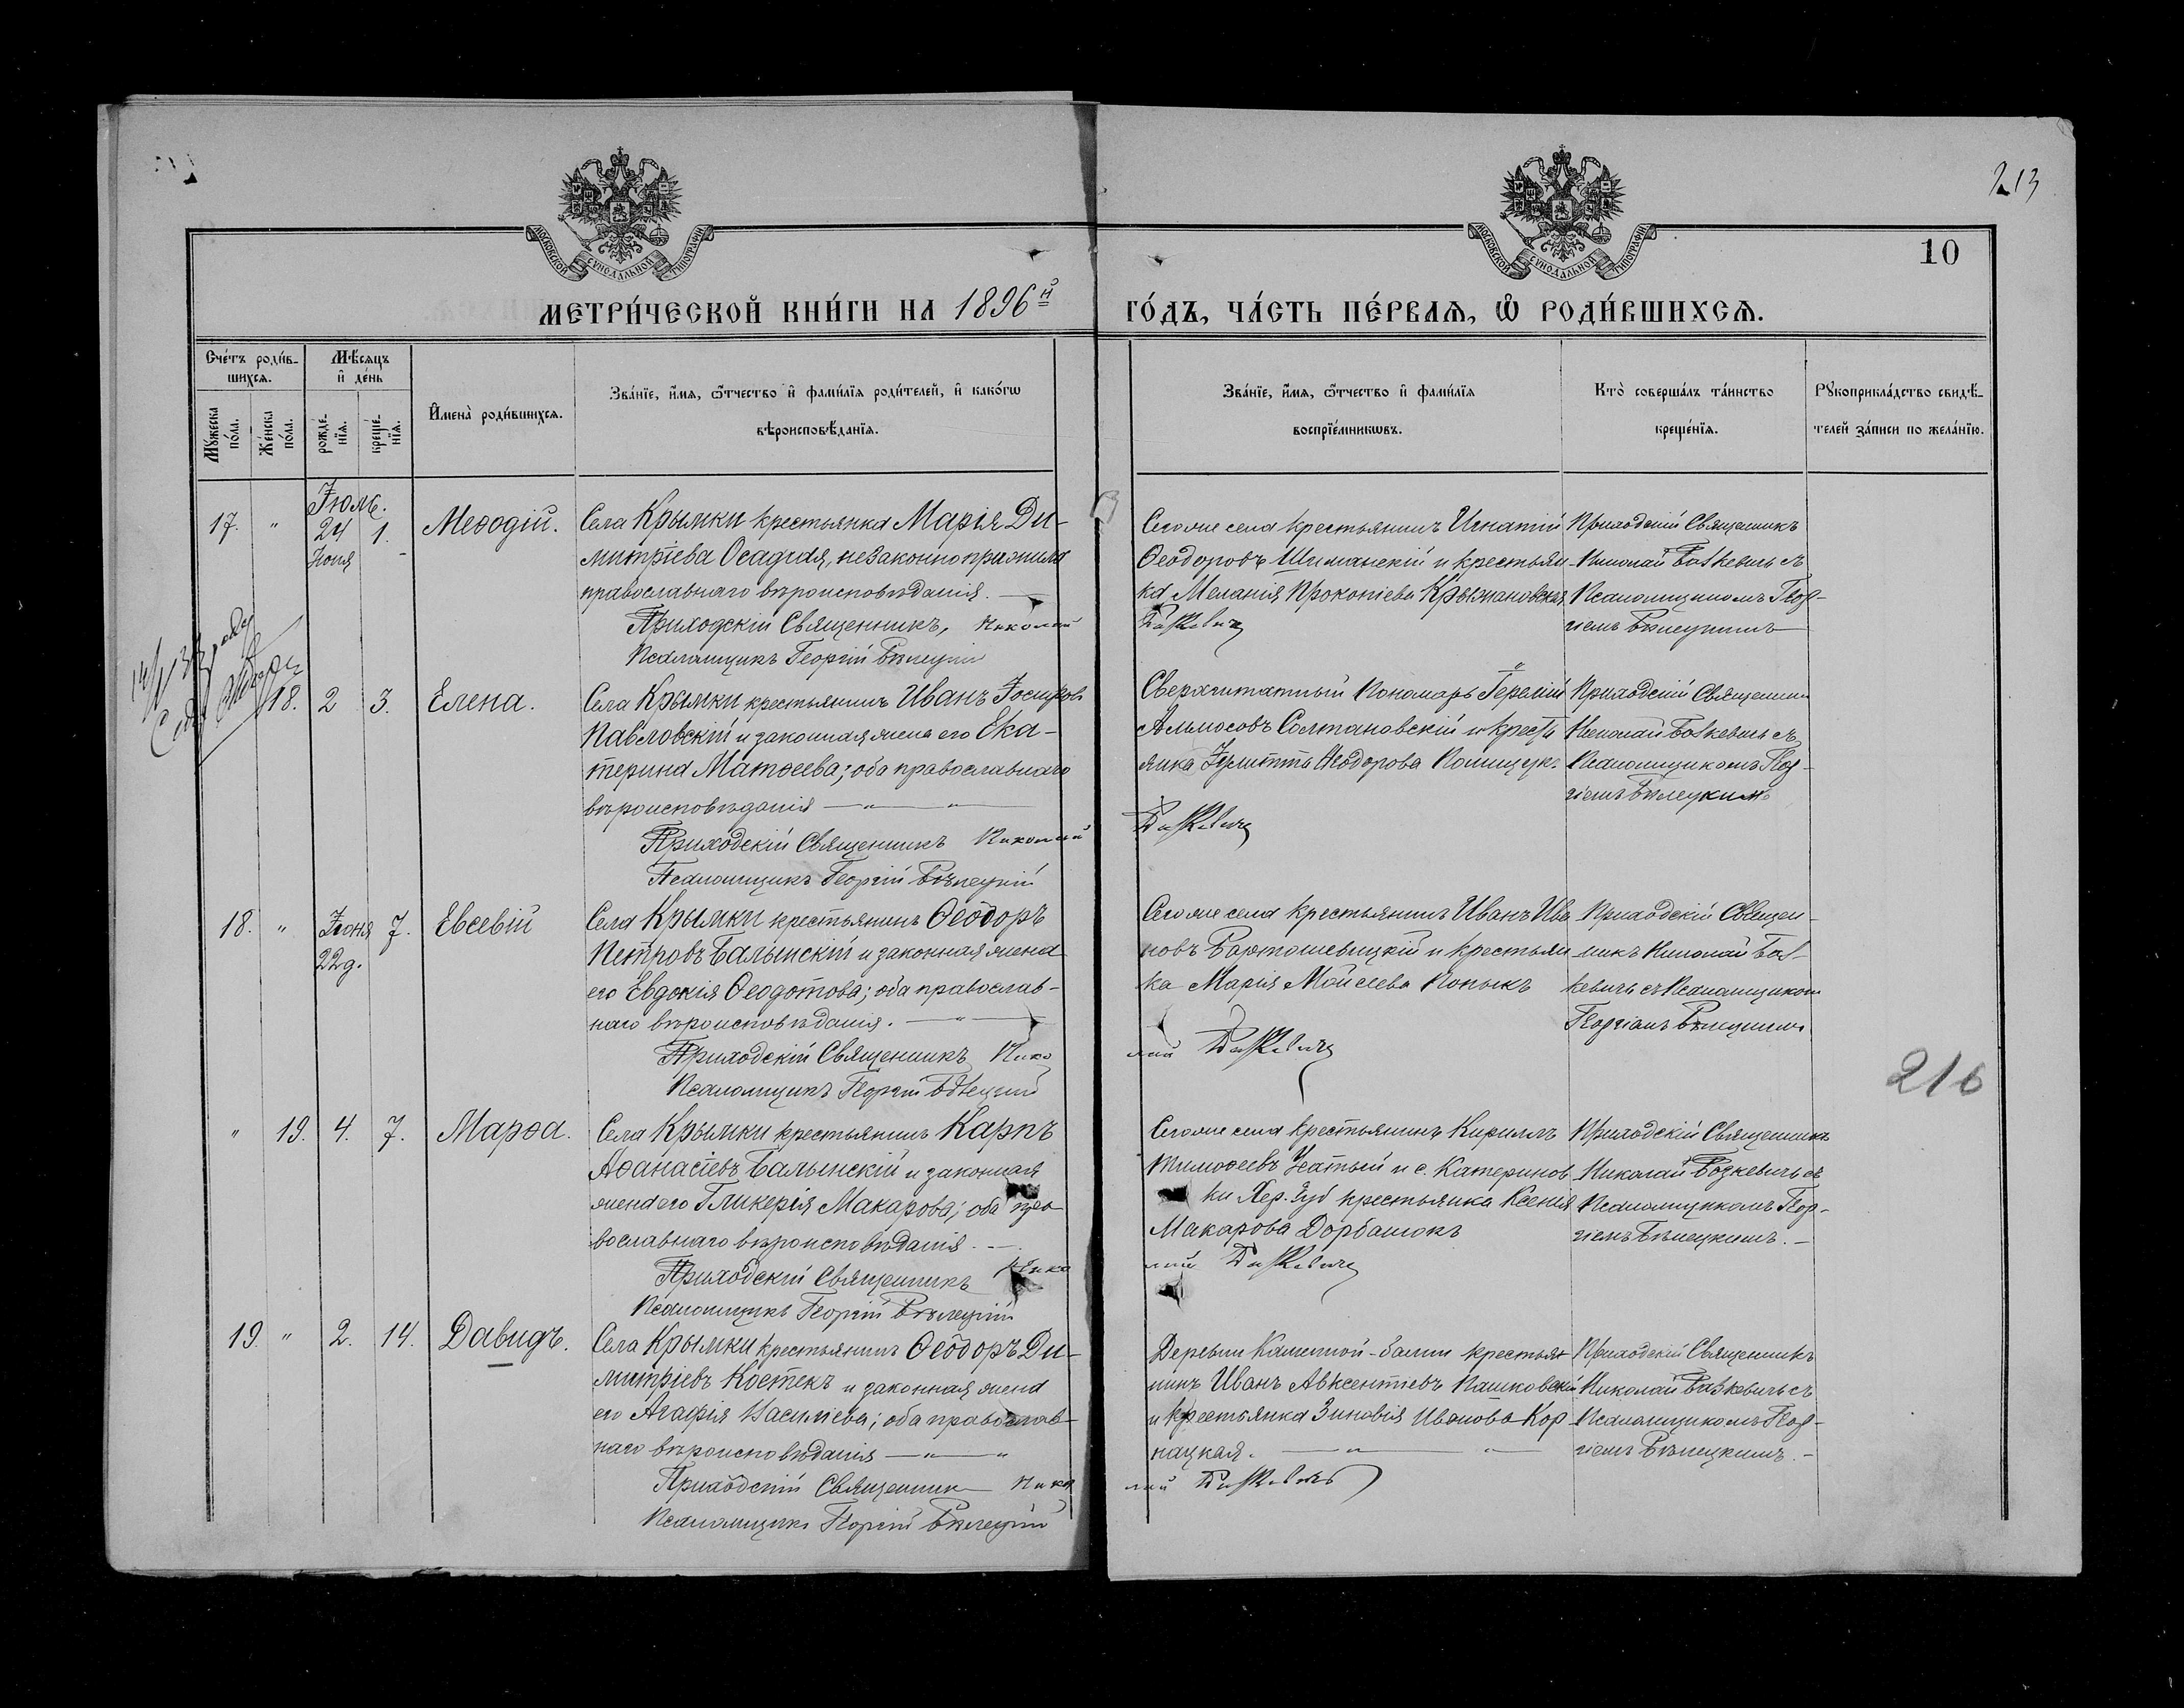 213
МОСКОВСКОЙ СѴНОДАЛЬНОЙ ТИПОГРАФІИ
МОСКОВСКОЙ СѴНОДАЛЬНОЙ ТИПОГРАФІИ
10
МЕТРИ́ЧЕСКОЙ КНИ́ГИ НА 1896й ГО́ДЪ, ЧА́СТЬ ПЕ́РВАѦ, Ѡ РОДИ́ВШИХСѦ.
Сче́тъ роди́в-
шихсѧ.
Мꙋ́жеска по́ла.
Же́нска по́ла.
Мѣ́сѧцъ
и҆ де́нь
рожде́-
нїѧ.
креще́-
нїѧ.
И҆мена̀ роди́вшихсѧ.
Зва́нїе, и҆́мѧ, ѻ҆́тчество и҆ фами́лїѧ роди́телей, и҆ како́гѡ
вѣроисповѣ́данїѧ.
Зва́нїе, и҆́мѧ, ѻ҆́тчество и҆ фами́лїѧ
воспрїе́мникѡвъ.
Кто̀ соверша́лъ та́инство
креще́нїѧ.
Рꙋкоприкла́дство свидѣ́-
телей за́писи по жела́нїю.
17. " Іюль. 24 Іюня 1. Меѳодій.
Села Крымки крестьянка Марія Ди-
митріева Осадчая, незаконно прижила
православнаго вѣроисповѣданія.
Приходскій Священникъ, Николай
Псаломщикъ Георгій Бѣлецкій
Сего же села крестьянинъ Игнатій
Ѳеодоровъ Шиманскій и крестьян
ка Меланія Прокопіева Крыжановская
Приходскій Священникъ
Николай съ
Псаломщикомъ Геор-
гіемъ Бѣлецкимъ
18. 2 3. Елена.
Села Крымки крестьянинъ Иванъ Іосифовъ
Павловскій и законная жена его Ека-
терина Матѳеева; оба православнаго
вѣроисповѣданія — " — "
Приходскій Священникъ Николай
Псаломщикъ Георгій Бѣлецкій
Сверхштатный Пономарь
Солтановскій и кресть
янка Іулитта Ѳеодорова Полищук
Приходскій Священник
Николай съ
Псаломщикомъ Геор-
гіемъ Бѣлецкимъ
18. " Іюня 22д. 7. Евсевій
Села Крымки крестьянинъ Ѳеодоръ
Петровъ Балынскій и законная жена
его Евдокія Ѳеодотова; оба православ-
наго вѣроисповѣданія. — " —
Приходскій Священникъ Нико
Псаломщикъ Георгій Бѣлецкій
Сего же села крестьянинъ Иванъ Ива
новъ Бартошевицкій и крестьян
ка Марія Моисеева Копыкъ
лай
Приходскій Священ-
никъ Николай
кевичъ съ Псаломщиком
Георгіемъ Бѣлецкимъ
216
" 19. 4. 7. Марѳа.
Села Крымки крестьянинъ Карпъ
Аѳанасіевъ Балынскій и законная
жена его Гликерія Макарова; оба пра-
вославнаго вѣроисповѣданія. —
Приходскій Священникъ Нико
Псаломщикъ Георгій Бѣлецкій
Сего же села крестьянинъ Кириллъ
Тимоѳеевъ и с. Катеринов
ки Хер. Губ крестьянка Ксенія
Макарова Дорбашокъ
лай
Приходскій Священникъ
Николай съ
Псаломщикомъ Геор-
гіемъ Бѣлецкимъ. —
19. " 2. 14. Давидъ.
Села Крымки крестьянинъ Ѳеодоръ Ди-
митріевъ Костекъ и законная жена
его Агафія Василіева; оба православ-
наго вѣроисповѣданія — " — "
Приходскій Священник Нико
Псаломщикъ Георгій Бѣлецкій
Деревни Каменной-балки крестья
нинъ Иванъ Авксентіевъ Пашковскій
и крестьянка Зиновія Иванова Кор
нацкая. — " — "
лай
Приходскій Священникъ
Николай съ
Псаломщикомъ Геор-
гіемъ Бѣлецкимъ. —